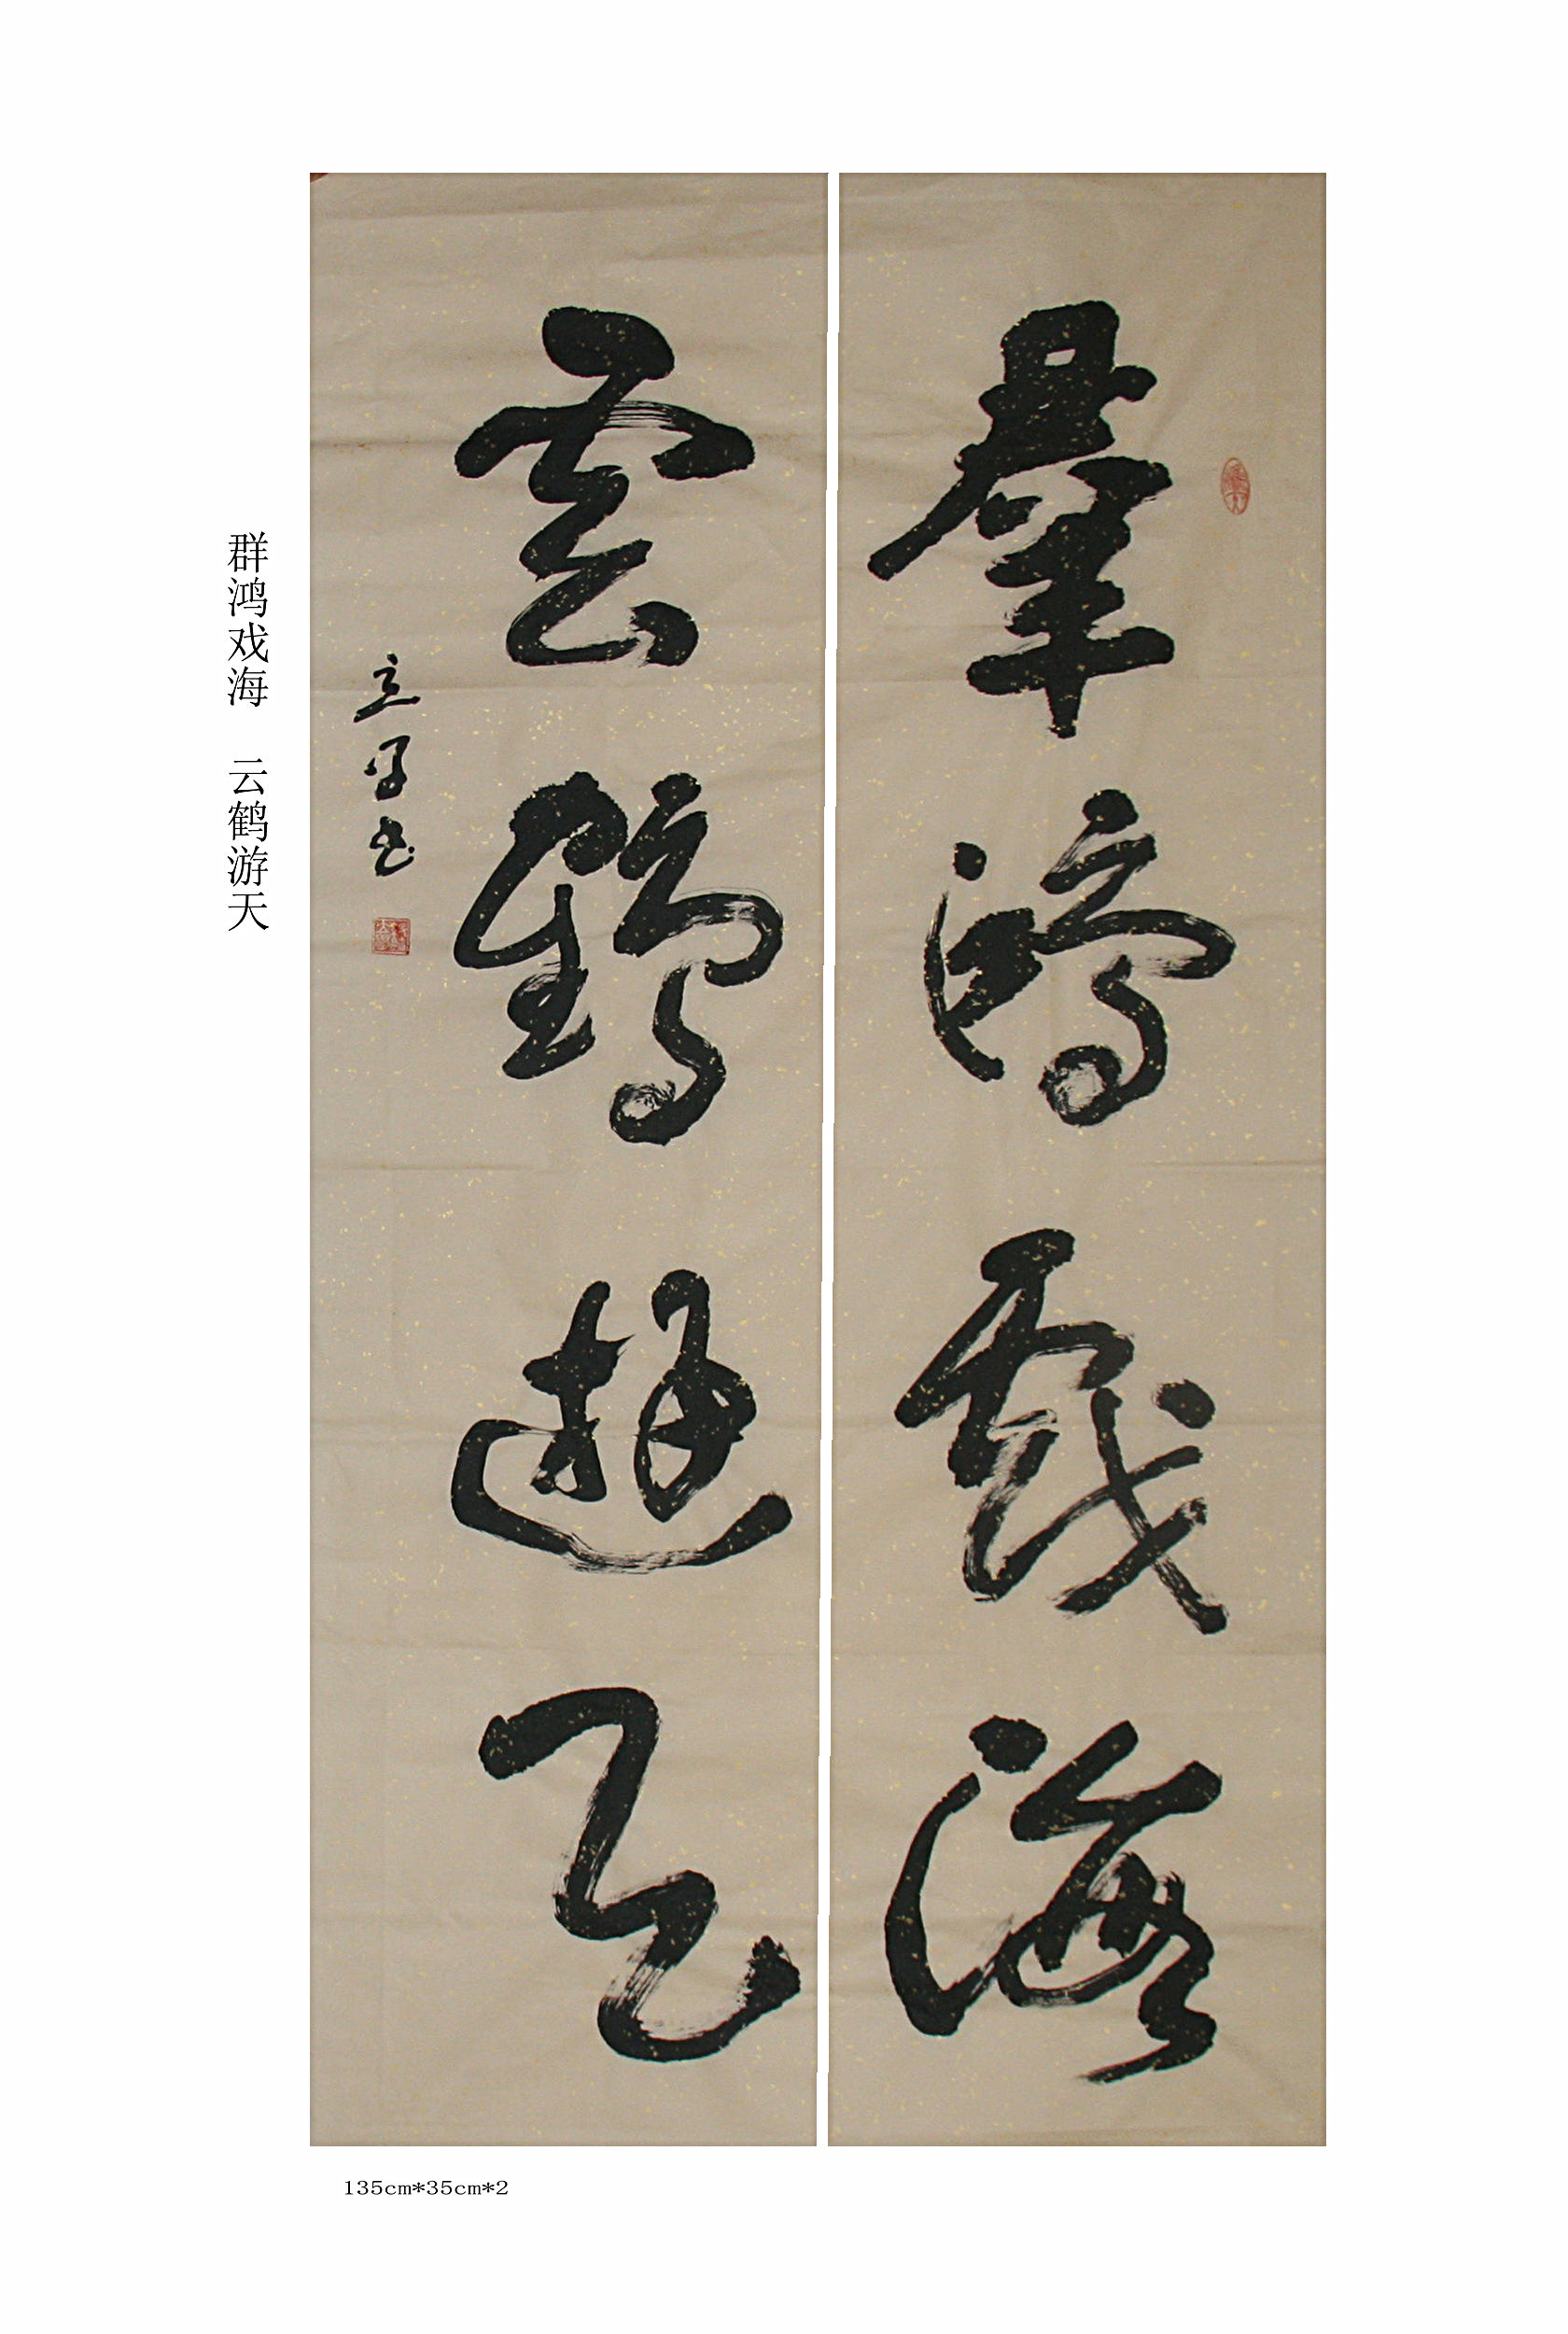 羣鴻戏海
雲鶴遊天
群鸿戏海 云鹤游天
135cm*35cm*2